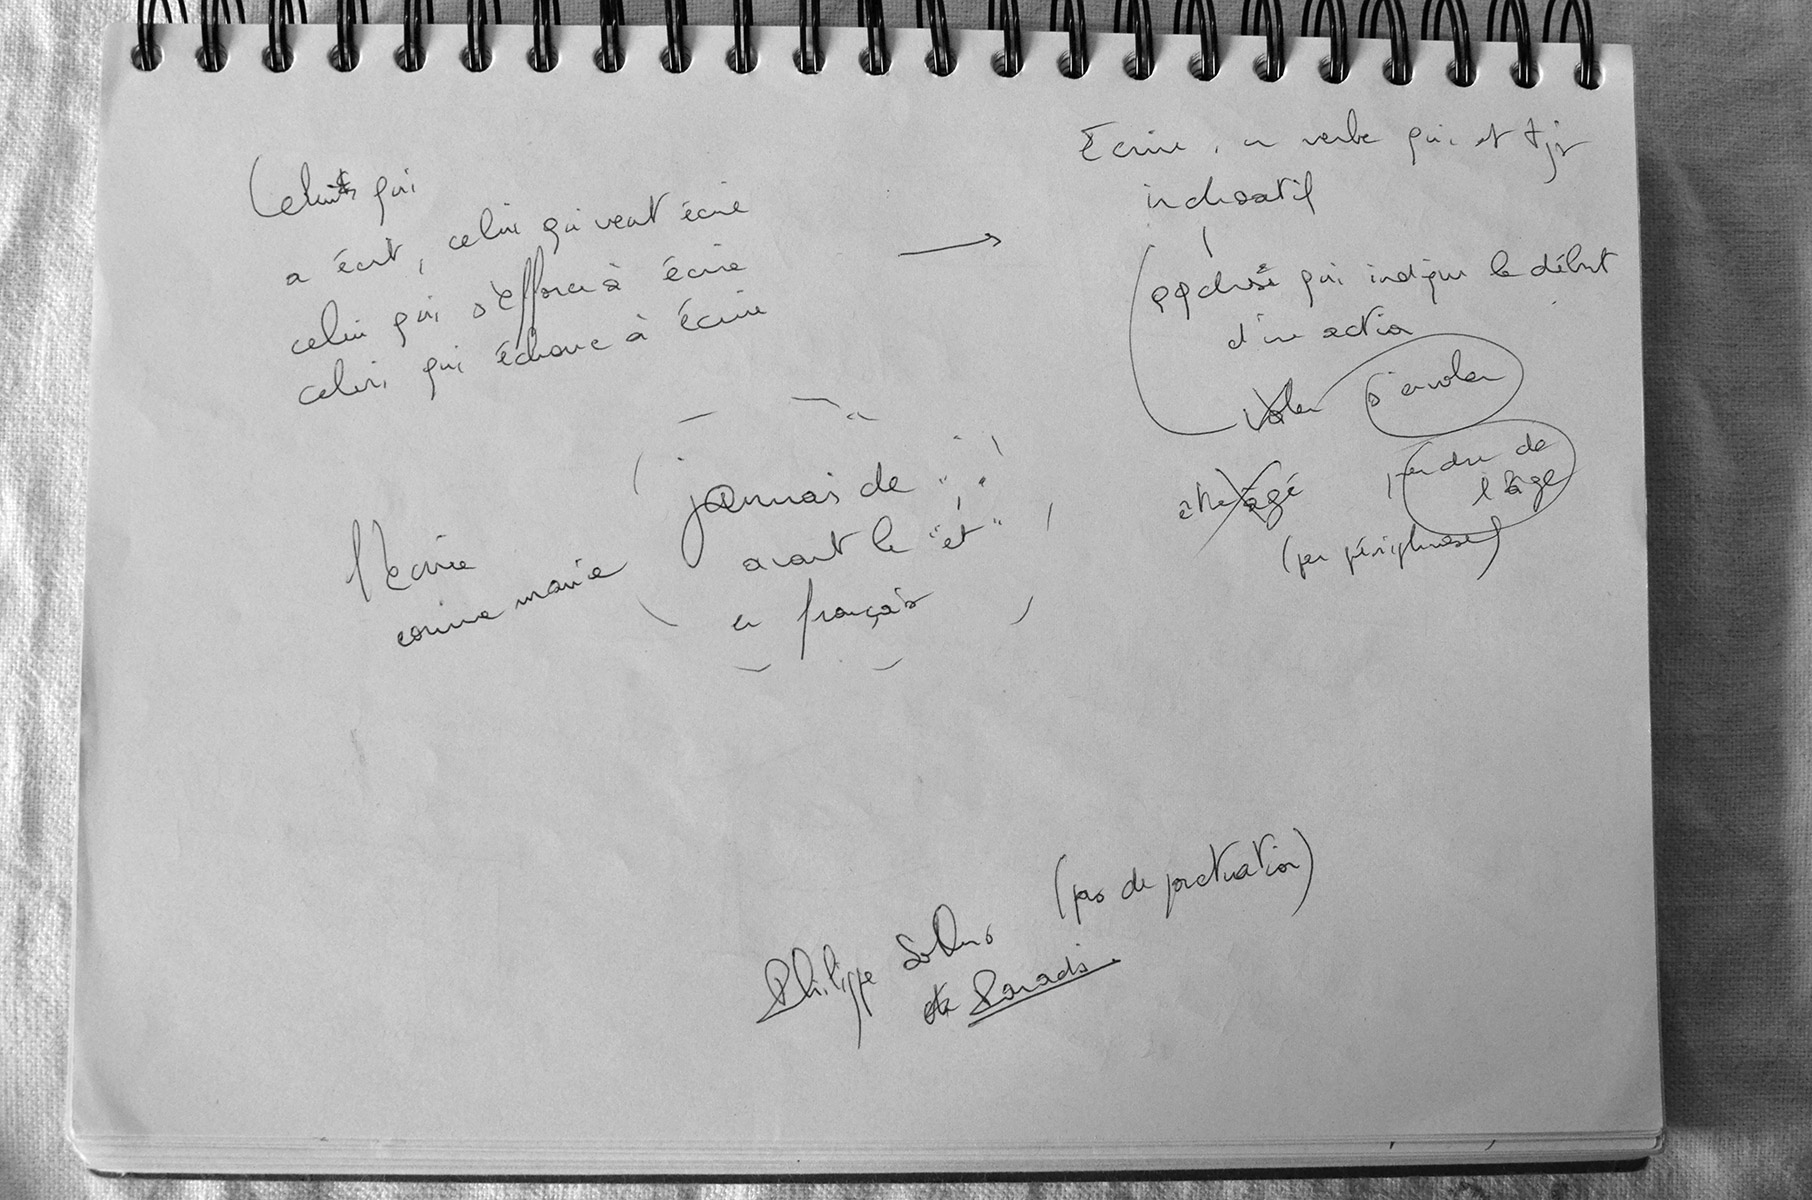 Celui qui
a écrit, celui qui veut écrire
celui qui s'efforce à écrire
celui qui échoue à écrire
→
Écrire, un verbe qui est tjr
inchoatif
qqchose qui indique le début
d'une action
Voler s'envoler
être âgé prendre de
l'âge
(par périphrase)
l'écrire
comme manie
jamais de ","
avant le "et"
en français
(pas de ponctuation)
Philippe Sollers
Paradis